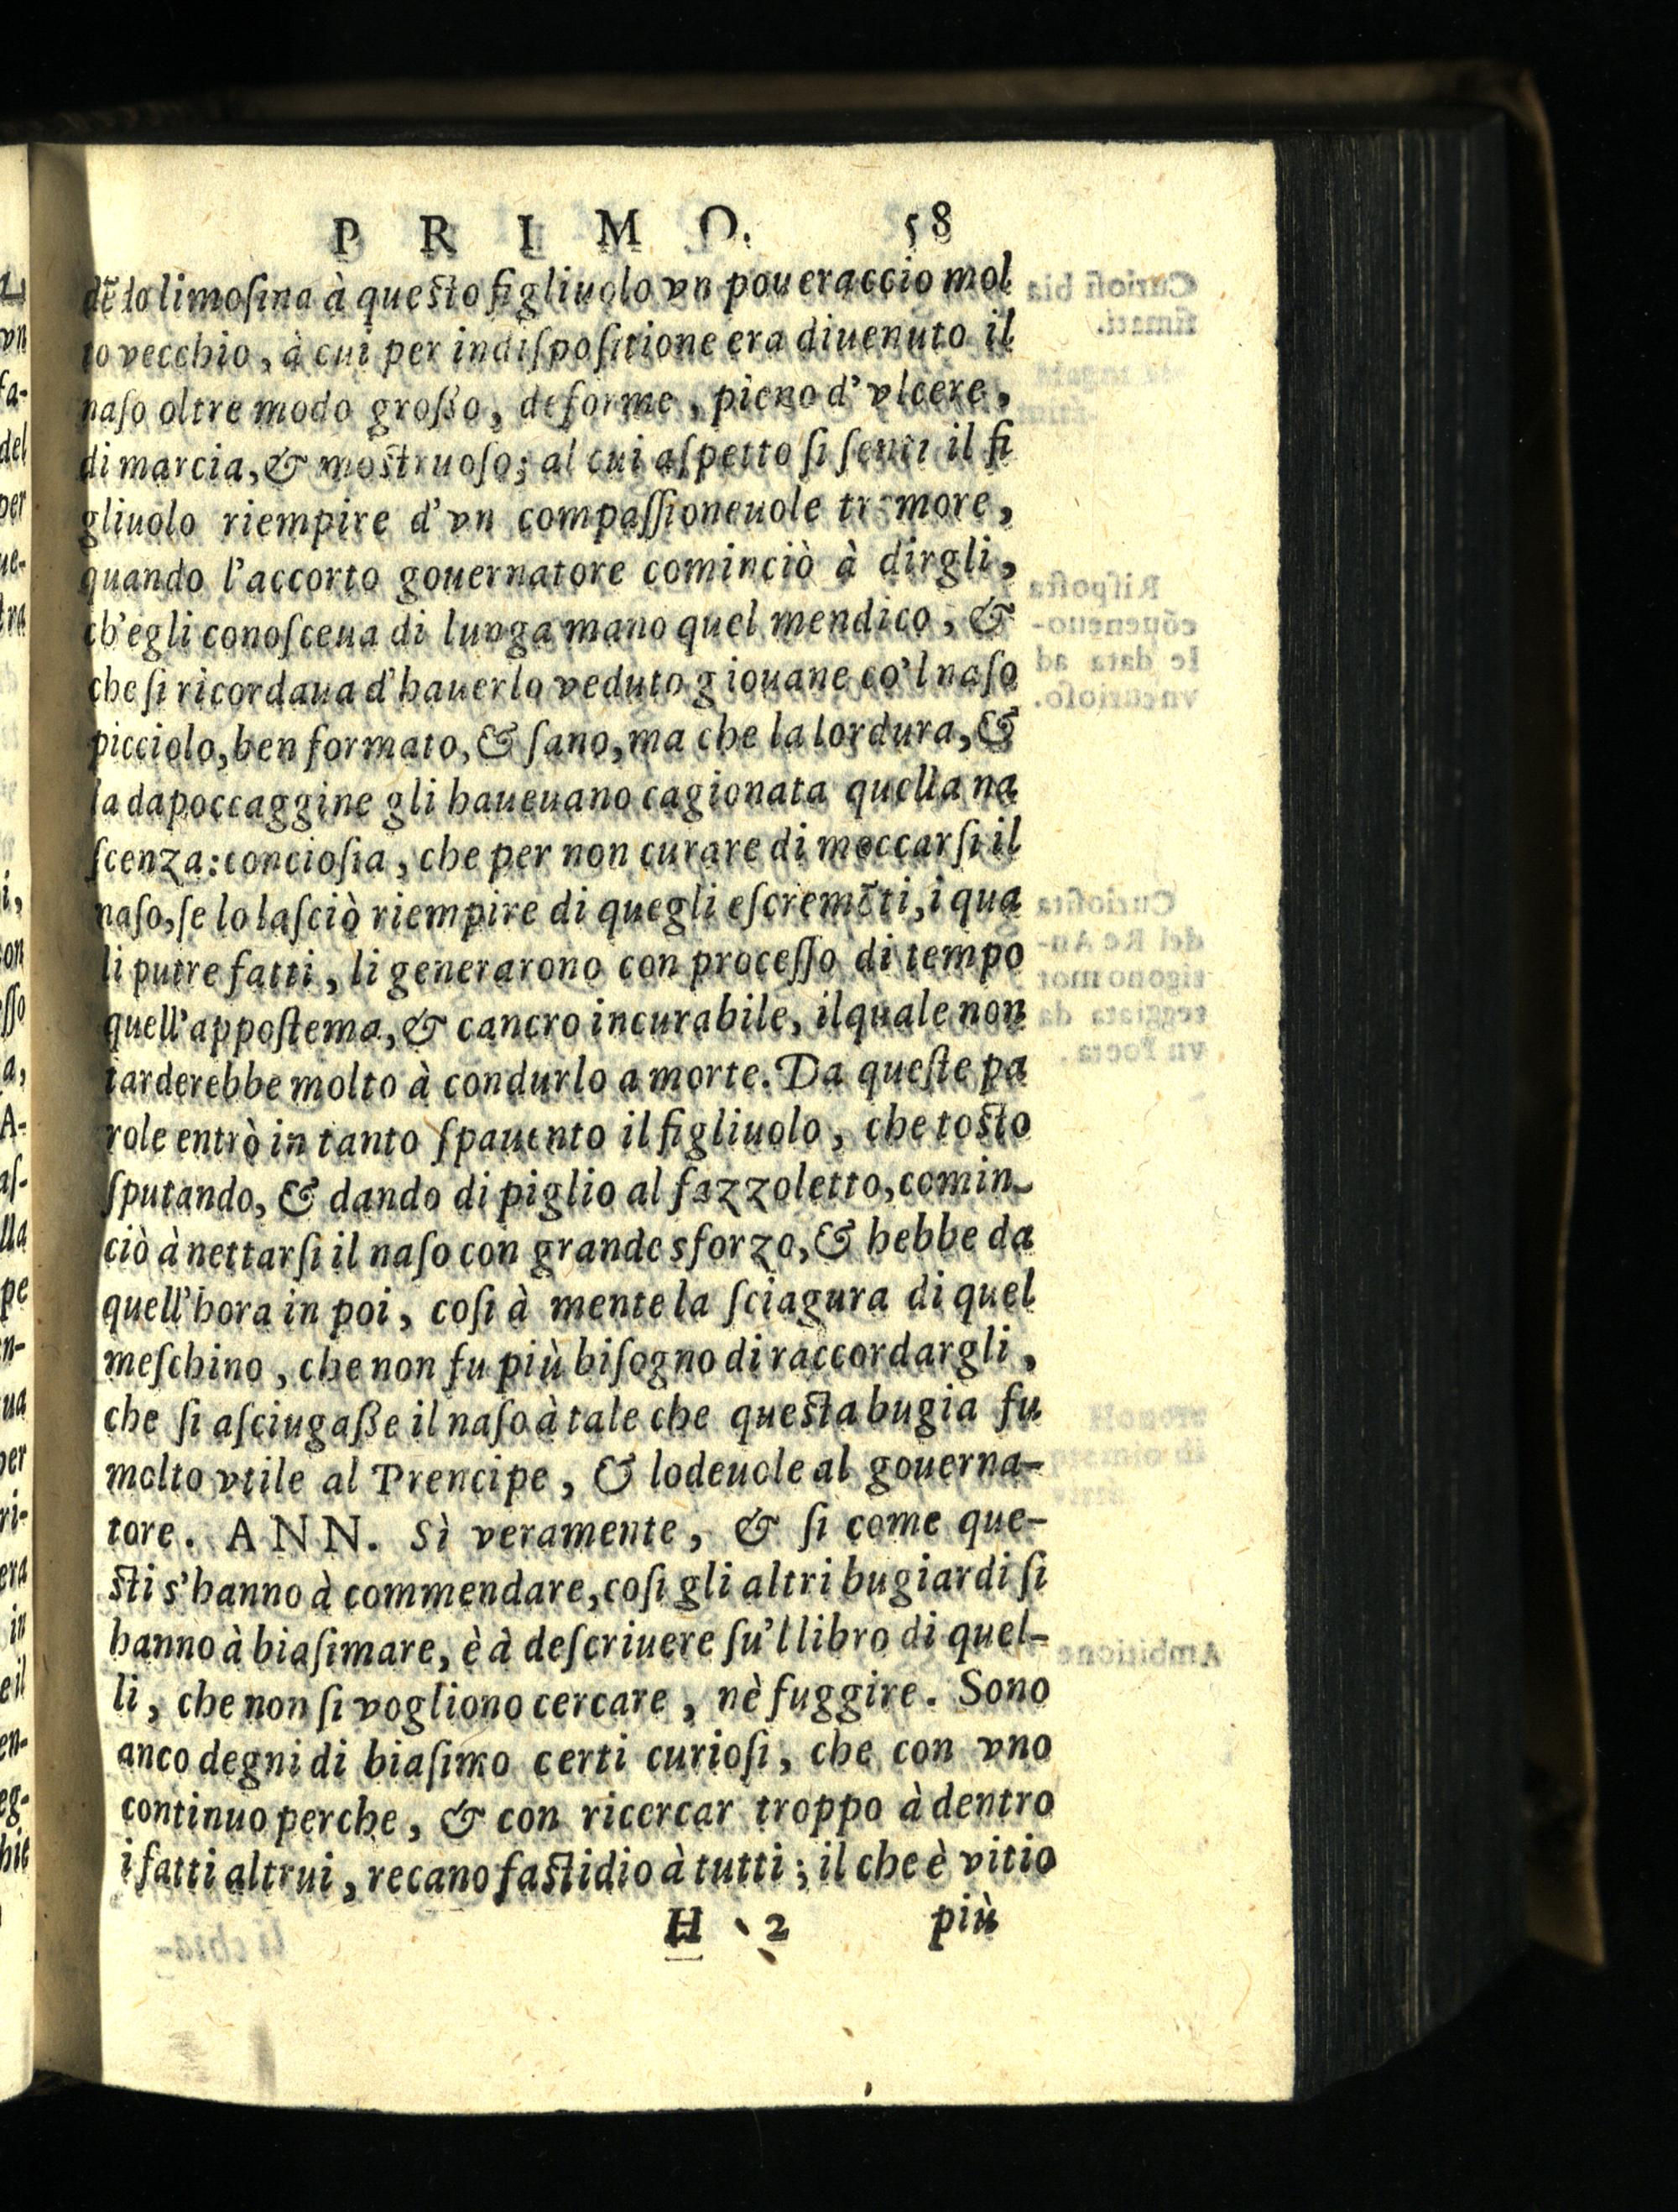 PRIMO. 58
dē lo limoſina à queſto figliuolo vn poueraccio mol
to vecchio, à cui per indiſpoſitione era diuenuto il
naſo oltre modo groſſo, deforme, pieno d'vlcere,
di marcia, & moſtruoſo; al cui aſpetto ſi ſentì il fi
gliuolo riempire d'vn compaſſioneuole tremore,
quando l'accorto gouernatore cominciò à dirgli,
ch'egli conoſceua di lunga mano quel mendico, &
che ſi ricordaua d'hauerlo veduto giouane co'l naſo
picciolo, ben formato, & ſano, ma che la lordura, &
la dapoccaggine gli haueuano cagionata quella na
ſcenza: concioſia, che per non curare di moccarſi il
naſo, ſe lo laſciò riempire di quegli eſcremēti, i qua
li putrefatti, li generarono con proceſſo di tempo
quell'appoſtema, & cancro incurabile, ilquale non
tarderebbe molto à condurlo a morte. Da queſte pa
role entrò in tanto ſpauento il figliuolo, che toſto
ſputando, & dando di piglio al fazzoletto, comin-
ciò à nettarſi il naſo con grande sforzo, & hebbe da
quell'hora in poi, coſi à mente la ſciagura di quel
meſchino, che non fu più biſogno di raccordargli,
che ſi aſciugaſſe il naſo à tale che queſta bugia fu
molto vtile al Prencipe, & lodeuole al gouerna-
tore. ANN. Sì veramente, & ſi come que-
ſti s'hanno à commendare, coſi gli altri bugiardi ſi
hanno à biaſimare, è à deſcriuere ſu'l libro di quel-
li, che non ſi vogliono cercare, nè fuggire. Sono
anco degni di biaſimo certi curioſi, che con vno
continuo perche, & con ricercar troppo à dentro
i fatti altrui, recano faſtidio à tutti; il che è vitio
H 2 più